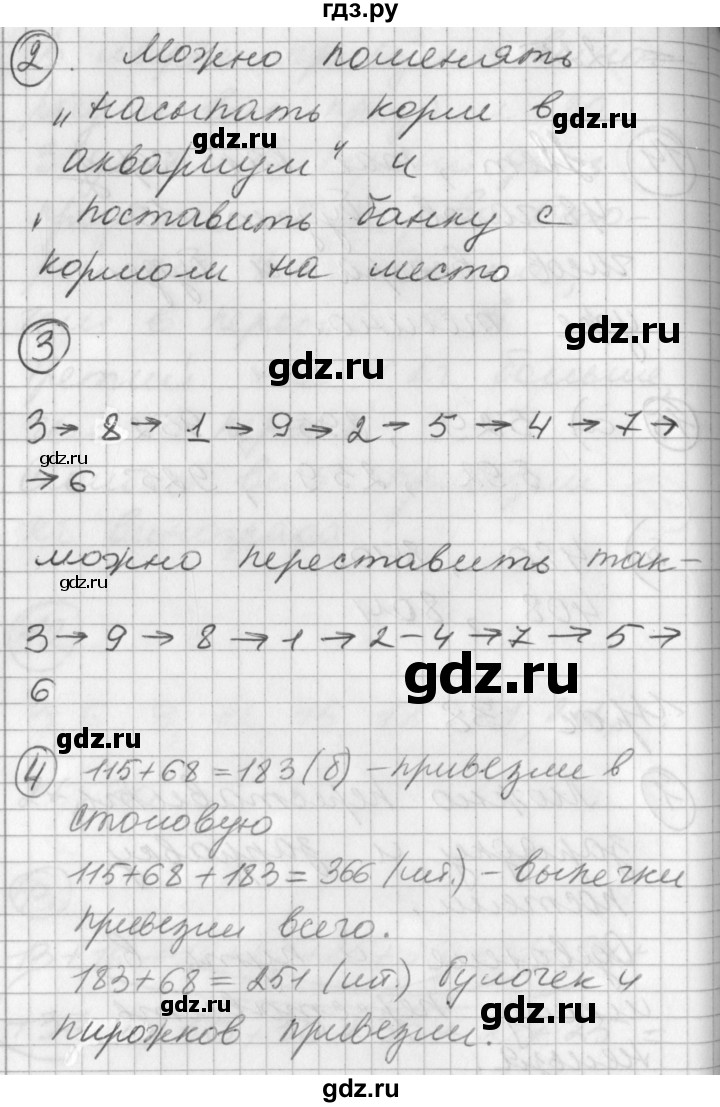 гдз.ру
2. Можно поменять
„насыпать корм в
gdz.ru
gdz.ru
аквариум" и
„поставить банку с
кормом на место
3
gdz.ru
gdz.ru
3→ 8→ 1 → 9 → 2 → 5 → 4 → 7→
gdz.ru
→ 6
можно переставить так-
gdz.ru
3→ 9 → 8 → 1 → 2-4 →7 → 5 →
gdz.ru
6
gdz.ru
4 115+68=183(б) -привезли в
столовую
115+68+183=366 (шт.) - выпечки
привезли всего.
183+68=251 (шт.) булочек и
gdz.ru
gdz.ru
пирожков привезли.
gdz.ru